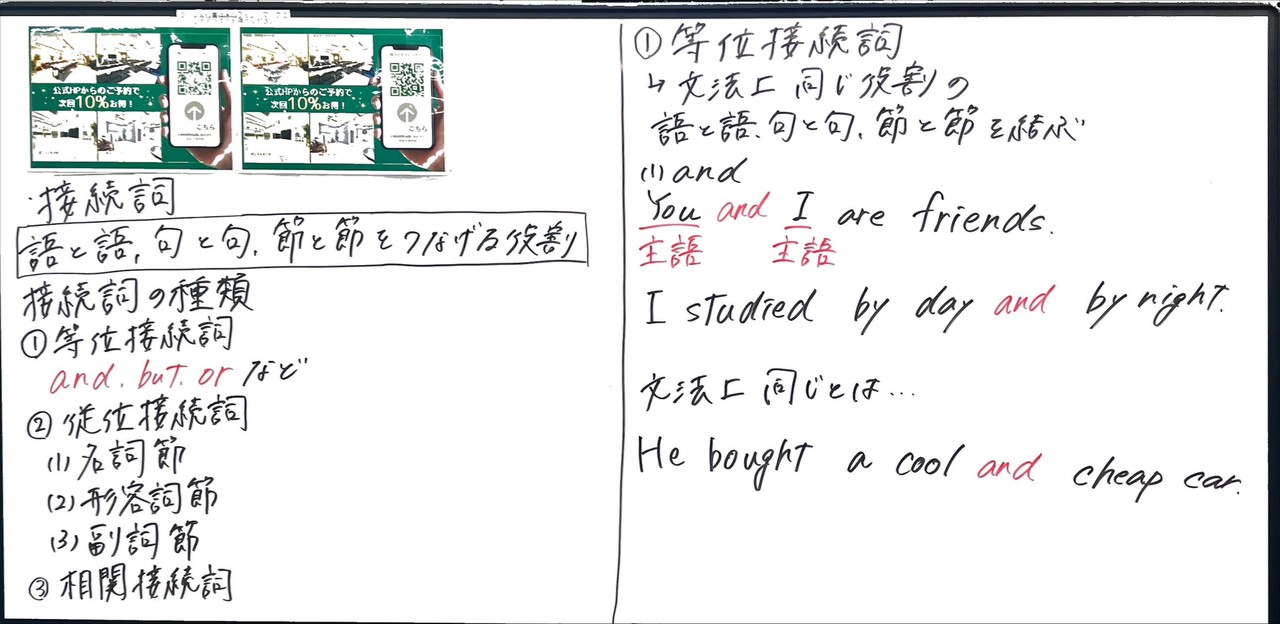 公式HPからのご予約で
次回10%お得！
こちら
公式HPからのご予約で
次回10%お得！
こちら
・接続詞
語と語，句と句，節と節をつなげる役割
接続詞の種類
①等位接続詞
and, but, or など
②従位接続詞
(1)名詞節
(2)形容詞節
(3)副詞節
③相関接続詞
①等位接続詞
↳文法上同じ役割の
語と語，句と句，節と節を結ぶ
(1) and
You and I are friends.
主語 主語
I studied by day and by night.
文法上同じとは…
He bought a cool and cheap car.